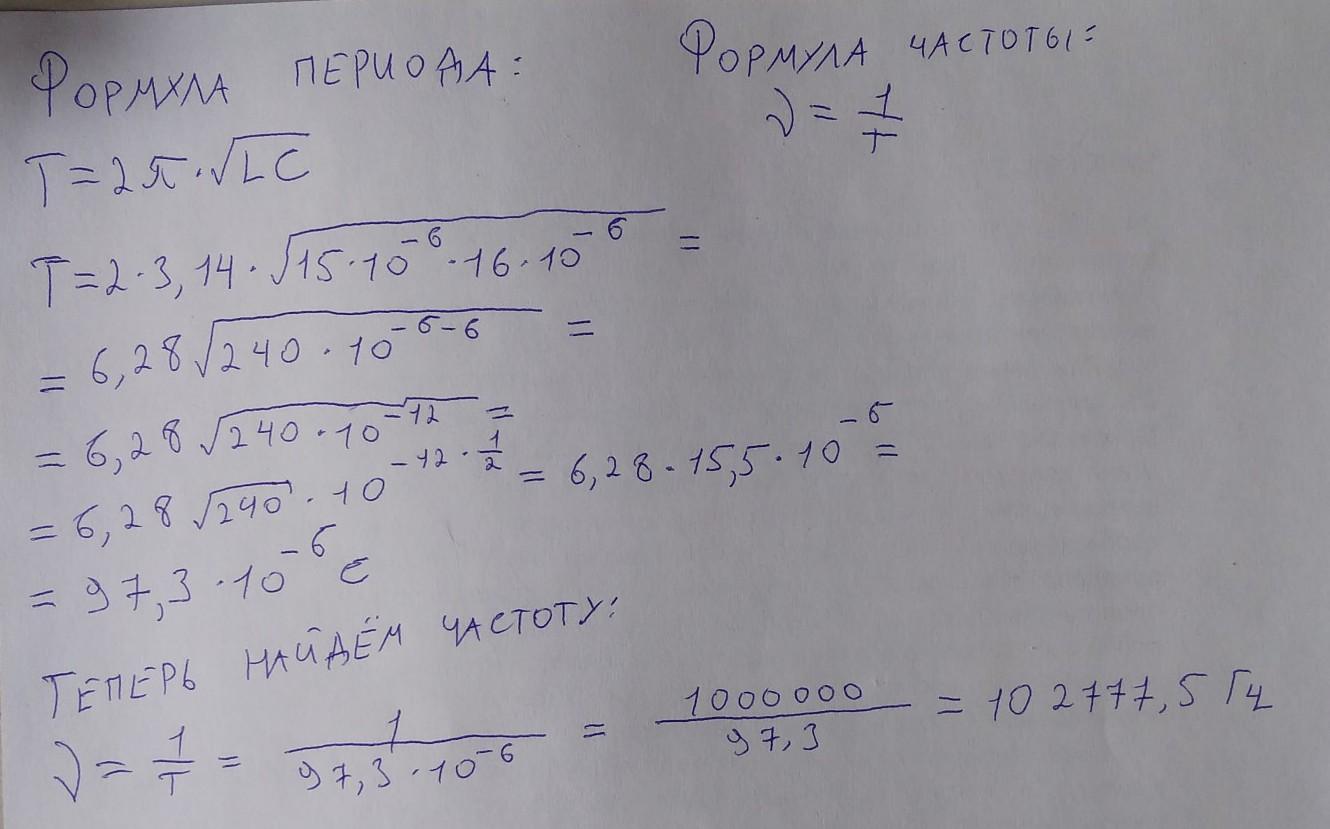 Формула периода:
Формула частоты:
ν = 1/T
T = 2π · √LC
T = 2 · 3,14 · √15 · 10⁻⁶ · 16 · 10⁻⁶ =
= 6,28 √240 · 10⁻⁶⁻⁶ =
= 6,28 √240 · 10⁻¹² =
= 6,28 √240 · 10^(-12 · 1/2) = 6,28 · 15,5 · 10⁻⁶ =
= 97,3 · 10⁻⁶ с
Теперь найдём частоту:
ν = 1/T = 1/(97,3 · 10⁻⁶) = 1000000/97,3 = 10 2777,5 Гц